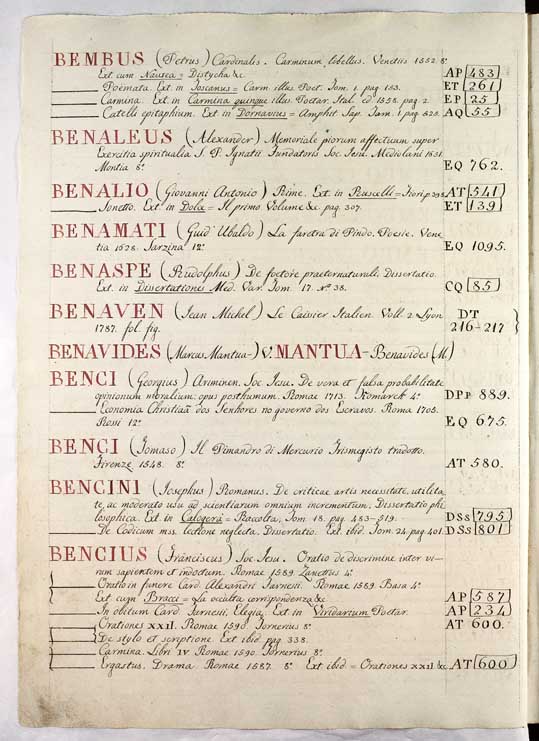 BEMBUS (Petrus) Cardinalis. Carminum libellus. Venetiis 1552. 8°
Ext. cum Nausea = Disticha &c AP 483
Poëmata. Ext. in Toscanus = Carm. illus. Poet. Tom. 1. pag. 183. ET 261
Carmina. Ext. in Carmina quinque illus. Poetar. Ital. ed. 1558. pag. 2 EP 25
Catelli epitaphium. Ext. in Dornavius = Amphit. Sap. Tom. 1. pag. 525. AQ 55
BENALEUS (Alexander) Memoriale piorum affectuum super
Exercitia spiritualia S. P. Ignatii Fundatoris Soc. Iesu. Mediolani 1631.
Montia 8° EQ 762.
BENALIO (Giovanni Antonio) Rime. Ext. in Ruscelli = Fiori p. 298 AT 541
Sonetto. Ext. in Dolce = Il primo Volume &c. pag. 307. ET 139
BENAMATI (Guid'Ubaldo) La faretra di Pindo. Poesie. Vene
tia 1628. Sarzina 12° EQ 1095.
BENASPE (Rudolphus) De foetore praeternaturali, Dissertatio.
Ext. in Dissertationes Med. Var. Tom. 17. N° 38. CQ 85
BENAVEN (Jean Michel) Le Caissier Italien. Voll. 2. Lyon DT
1787. fol. fig. 216-217
BENAVIDES (Marcus Mantua-) V. MANTUA-Benavides (M.)
BENCI (Georgius) Ariminen. Soc. Iesu. De vera et falsa probabilitate
opinionum moralium: opus posthumum. Romae 1713. Komarek 4° DPP 889.
Economia Christiaã dos Senhores no governo dos Escravos. Roma 1705.
Rossi 12° EQ 675.
BENCI (Tomaso) Il Pimandro di Mercurio Trismegisto tradotto.
Firenze 1548. 8° AT 580.
BENCINI (Iosephus) Romanus. De criticae artis necessitate, utilita
te, ac moderato usu ad scientiarum omnium incrementum. Dissertatio phi
losophica. Ext. in Calogerà = Raccolta, Tom. 18. pag. 483-519. DSs 795
De Codicum mss. lectione neglecta. Dissertatio. Ext. ibid. Tom. 24. pag. 401. DSs 801
BENCIUS (Franciscus) Soc. Iesu. Oratio de discrimine inter vi-
rum sapientem et indoctum. Romae 1589. Zanettus 4°
Oratio in funere Card. Alexandri Farnesii. Romae 1589. Basa 4°
Ext. cum Bracci = La occulta corrispondenza &c AP 587
In obitum Card. Farnesii, Elegia. Ext. in Viridarium Poetar. AP 234
Orationes XXII. Romae 1590. Tornerius 8° AT 600.
De stylo et scriptione. Ext. ibid. pag. 338.
Carmina. Libri IV. Romae 1590. Tornerius 8°
Ergastus. Drama. Romae 1587. 8° Ext. ibid = Orationes XXII &c AT 600